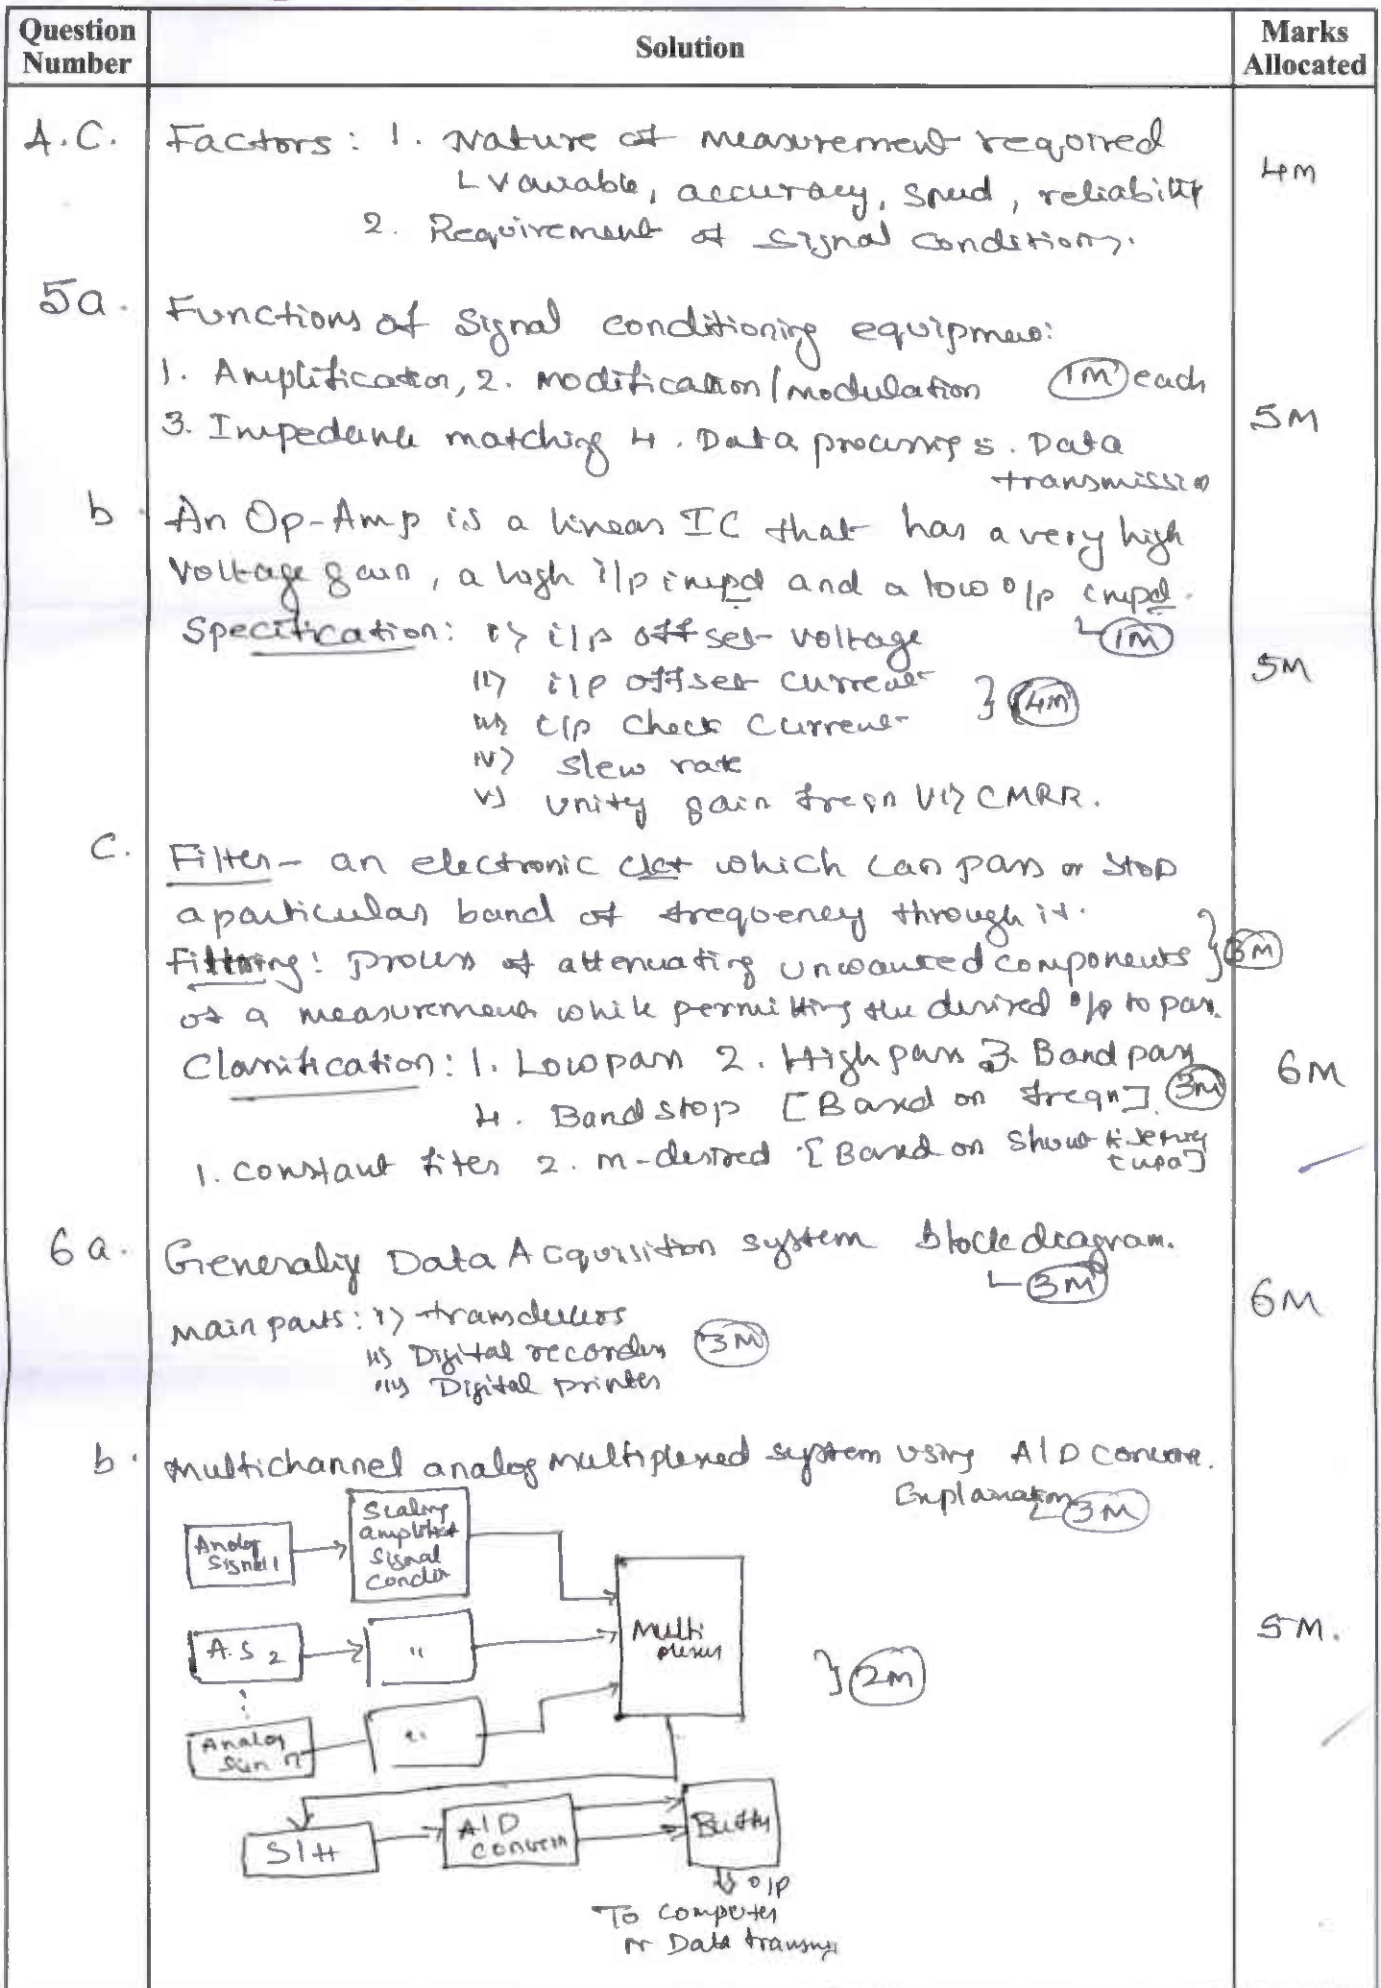 Question Number
Solution
Marks Allocated
4.C.
Factors: 1. Nature of measurement required
variable, accuracy, speed, reliability
4M
2. Requirement of signal conditions.
5a.
Functions of Signal conditioning equipment:
1. Amplification, 2. modification/modulation (1M) each
3. Impedance matching 4. Data processing 5. Data
transmission
5M
b.
An Op-Amp is a linear IC that has a very high
Voltage gain, a high i/p impd and a low o/p impd.
(1M)
Specification: i) i/p offset voltage
ii) i/p offset current
(4M)
5M
iii) i/p Current
iv) slew rate
v) unity gain freqn vi) CMRR.
c.
Filter - an electronic ckt which can pass or stop
a particular band of frequency through it.
Filtering: process of attenuating unwanted components
(3M)
of a measurement while permitting the desired o/p to pass.
Classification: 1. Low pass 2. High pass 3. Band pass
4. Band stop [Based on freqn]. (3M)
6M
1. constant filter 2. m-derived [Based on
6a.
Generaliy Data Acquisition system block diagram.
(3M)
6M
Main parts: i) transducers
ii) Digital recorder (3M)
iii) Digital printer
b.
Multichannel analog multiplexed system using A/D
Explanation (3M)
Analog Signal 1
Scaling
Signal
A.S 2
"
Multi plexer
} (2M)
5M.
Analog n
"
S/H
A/D
Buffer
o/p
To Computer
or Data